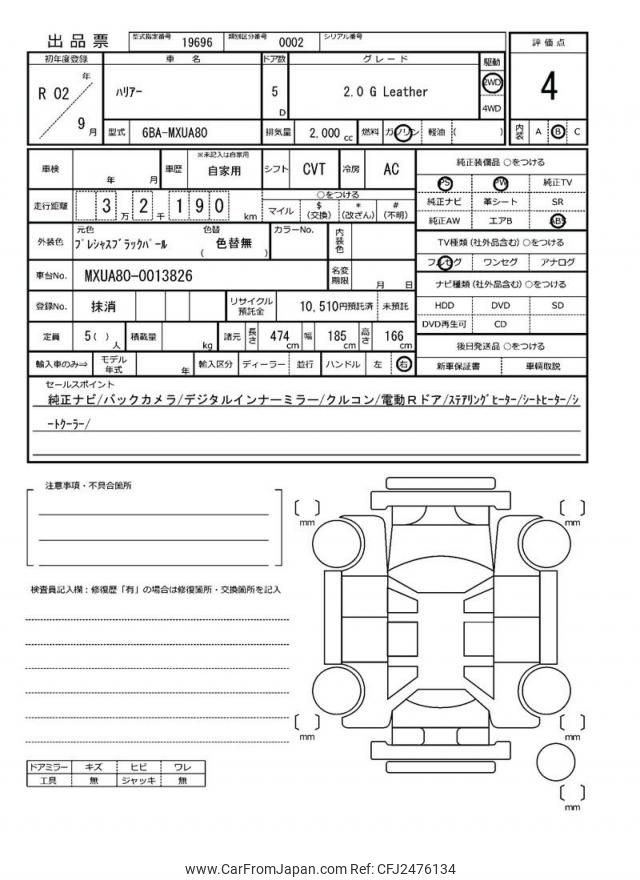 出品票
型式指定番号 19696 類別区分番号 0002 シリアル番号
初年度登録 車名 ドア数 グレード 駆動 評価点
R 02 年 9 月 ﾊﾘｱｰ 5 D 2.0 G Leather 2WD 4WD 4
型式 6BA-MXUA80 排気量 2,000 cc 燃料 ガソリン 軽油 ( ) 内装 A B C
車検 年 月 車歴 ※未記入は自家用 自家用 シフト CVT 冷房 AC
純正装備品 ○をつける
PS PW 純正TV
純正ナビ 革シート SR
純正AW エアB ABS
走行距離 3 万 2 千 1 9 0 km
○をつける
マイル $ (交換) * (改ざん) # (不明)
外装色 元色 ﾌﾟﾚｼｬｽﾌﾞﾗｯｸﾊﾟｰﾙ 色替 色替無 ( ) カラーNo. 内装色
TV種類 (社外品含む) ○をつける
フルセグ ワンセグ アナログ
車台No. MXUA80-0013826 名変期限 月 日
ナビ種類 (社外品含む) ○をつける
HDD DVD SD
DVD再生可 CD
登録No. 抹消 リサイクル預託金 10,510円預託済 未預託
定員 5 ( ) 人 積載量 kg 諸元 長さ 474 cm 幅 185 cm 高さ 166 cm
後日発送品 ○をつける
新車保証書 車輌取説
輸入車のみ⇒ モデル年式 年 輸入区分 ディーラー 並行 ハンドル 左 右
セールスポイント
純正ナビ/バックカメラ/デジタルインナーミラー/クルコン/電動Ｒドア/ｽﾃｱﾘﾝｸﾞﾋｰﾀｰ/シートヒーター/シ
ートクーラー/
注意事項・不具合箇所
mm mm
検査員記入欄：修復歴「有」の場合は修復箇所・交換箇所を記入
mm mm
ドアミラー キズ ヒビ ワレ
工具 無 ジャッキ 無
mm
www.CarFromJapan.com Ref: CFJ2476134